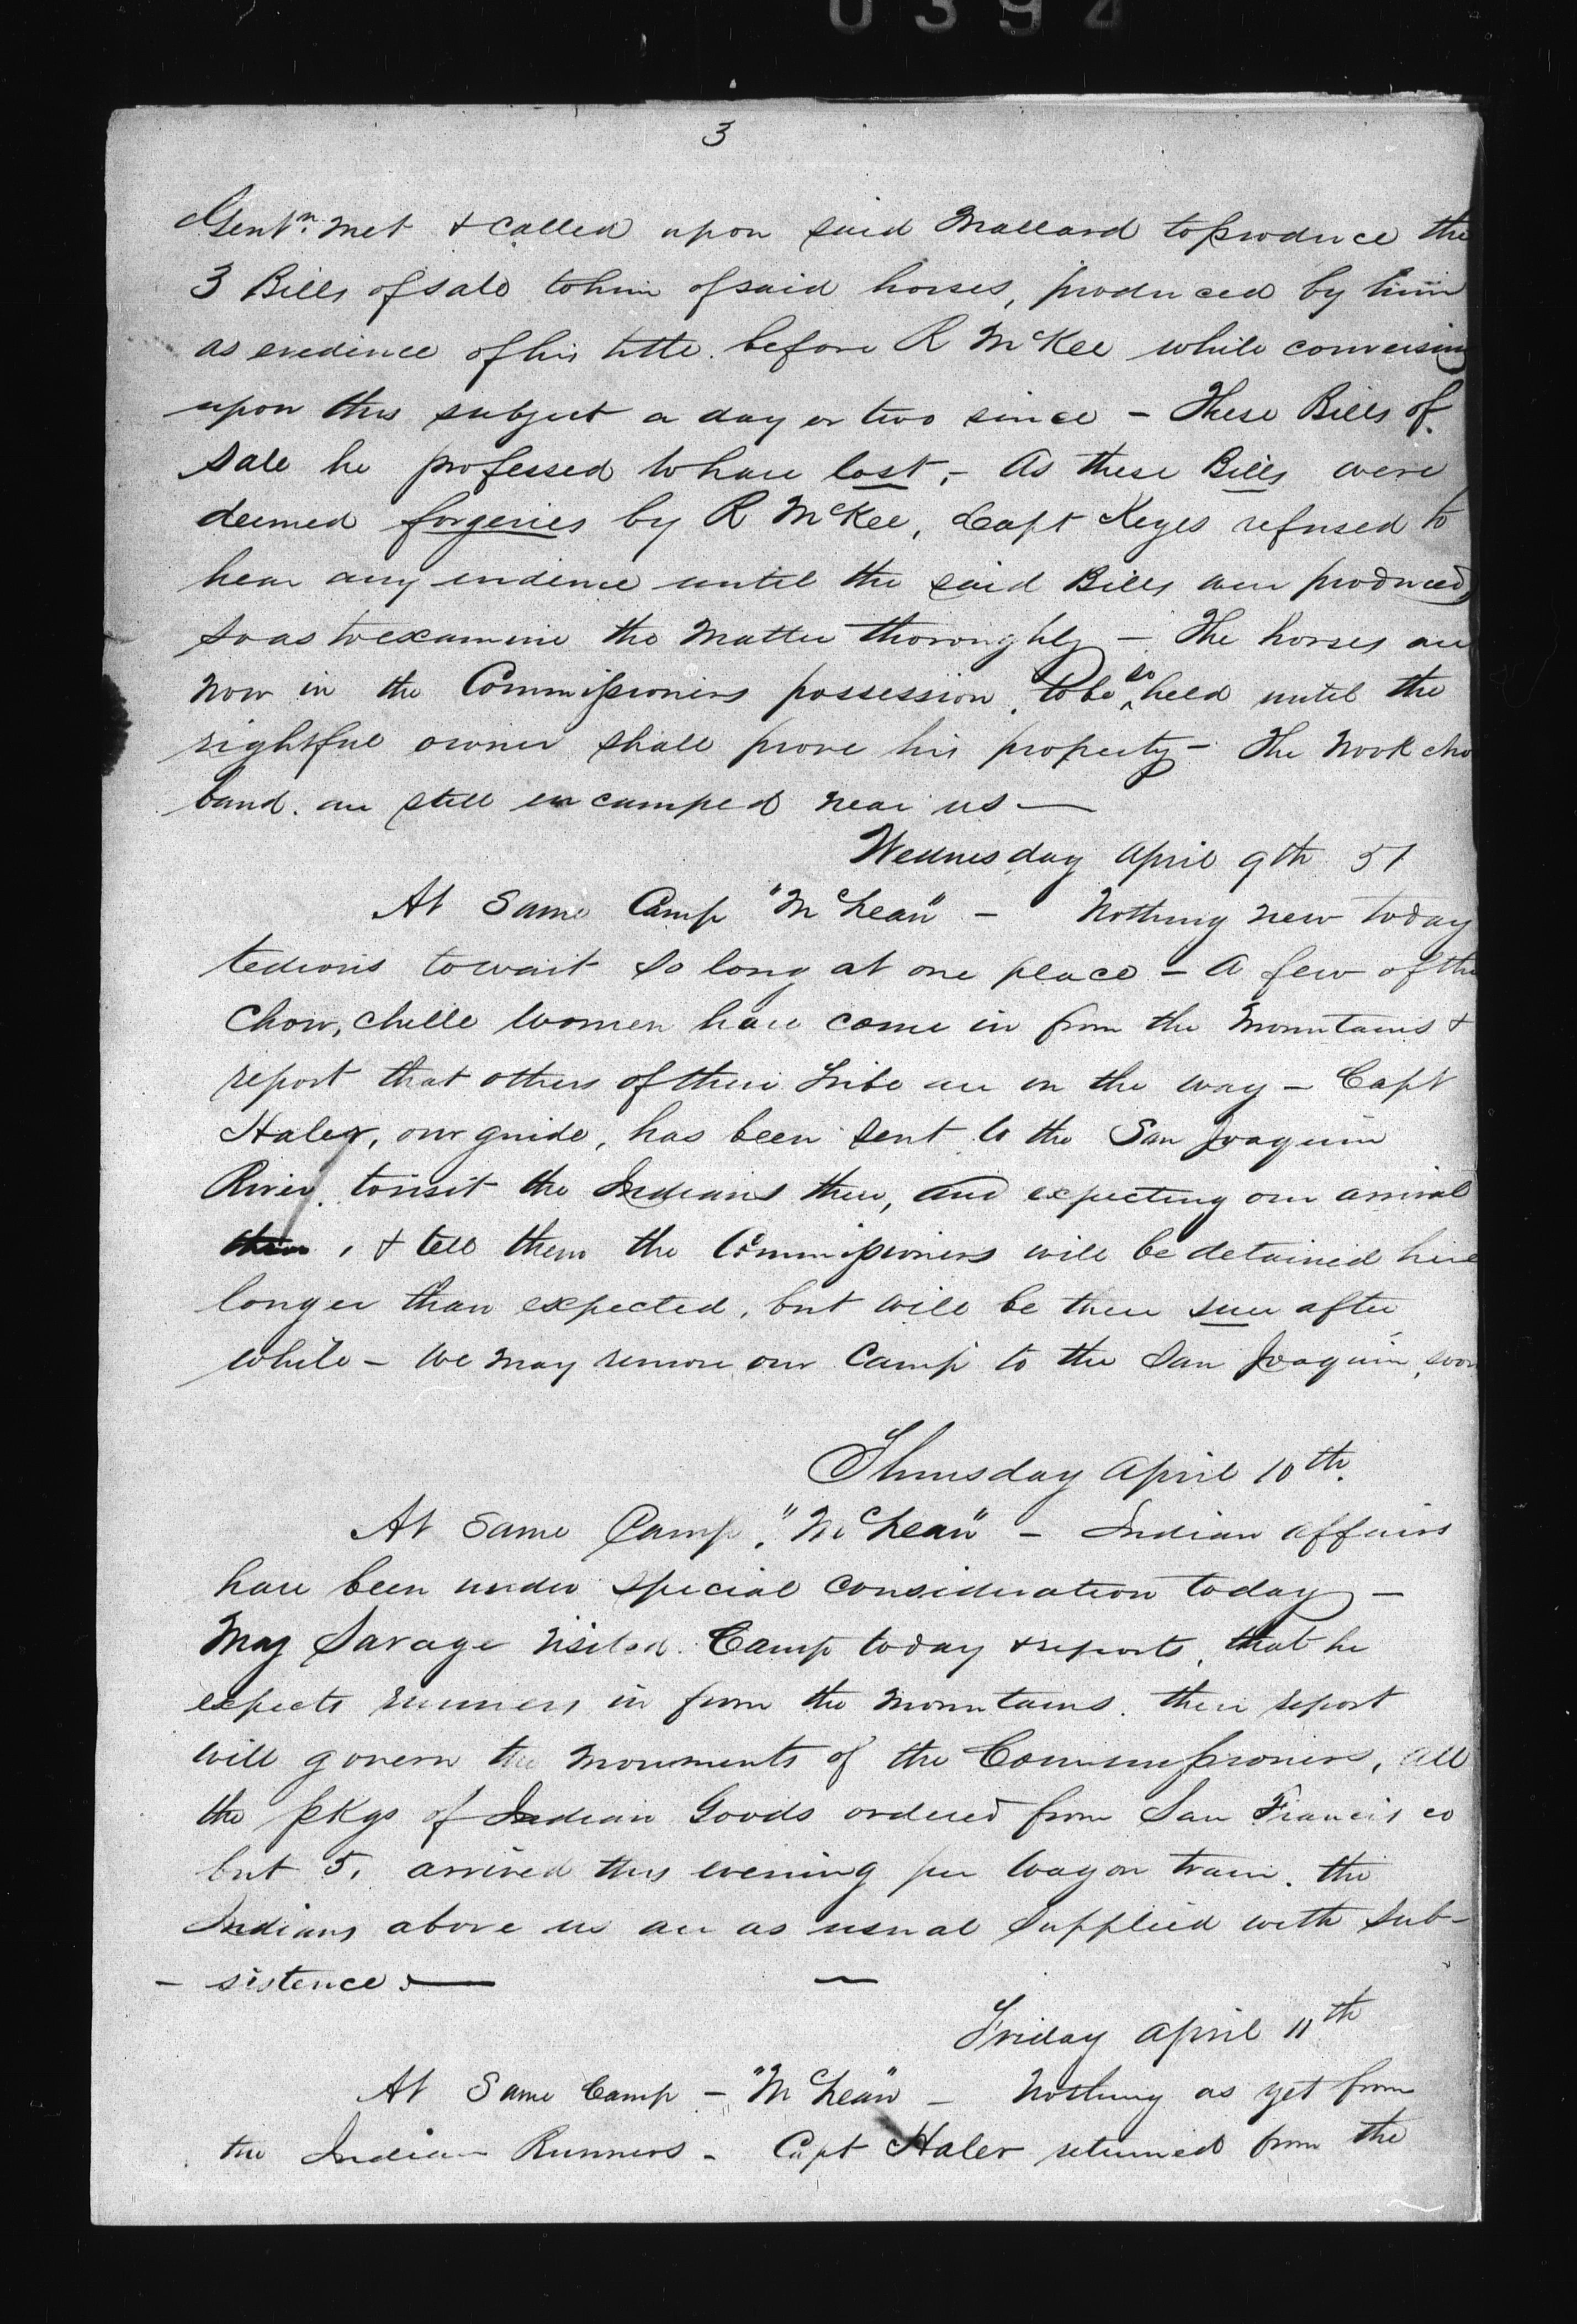 0394
3
Gentn. met & called upon said Mallard to produce the
3 Bills of sale to him of said horses, produced by him
as evedince of his title. before R McKee while conversing
upon this subject a day or two since - These Bills of
Sale he professed to have lost, - As these Bills were
deemed forgeries by R McKee, Capt Keyes refused to
hear any evidence until the said Bills were produced,
so as to examine the matter thoroughly - The horses are
now in the Commissioners possession, to be so held until the
rightful owner shall prove his property - The Nook cho
band. are still encamped near us —
Wednesday April 9th 51
At Same Camp "McLean" - Nothing new today
tedious to wait so long at one place - A few of the
Chow, chille women have come in from the mountains &
report that others of their tribe are on the way - Capt
Haler, our guide, has been sent to the San Joaquin
River. to visit the Indians there, and expecting our arrival
there, & tell them the Commissioners will be detained here
longer than expected, but will be there sure after
while - We may remove our Camp to the San Joaquin, soon
Thursday April 10th.
At Same Camp, "McLean" - Indian affairs
have been under special consideration today -
Maj Savage visited. Camp today & reports, that he
expects runners in from the mountains. their report
will govern the movements of the Commissioners, all
the pkgs of Indian Goods ordered from San Francisco
but 5, arrived this evening per wagon train. the
Indians above us are as usual supplied with sub-
- sistence. —
Friday April 11th
At Same Camp - "McLean" - Nothing as yet from
the Indian Runners - Capt Haler returned from the